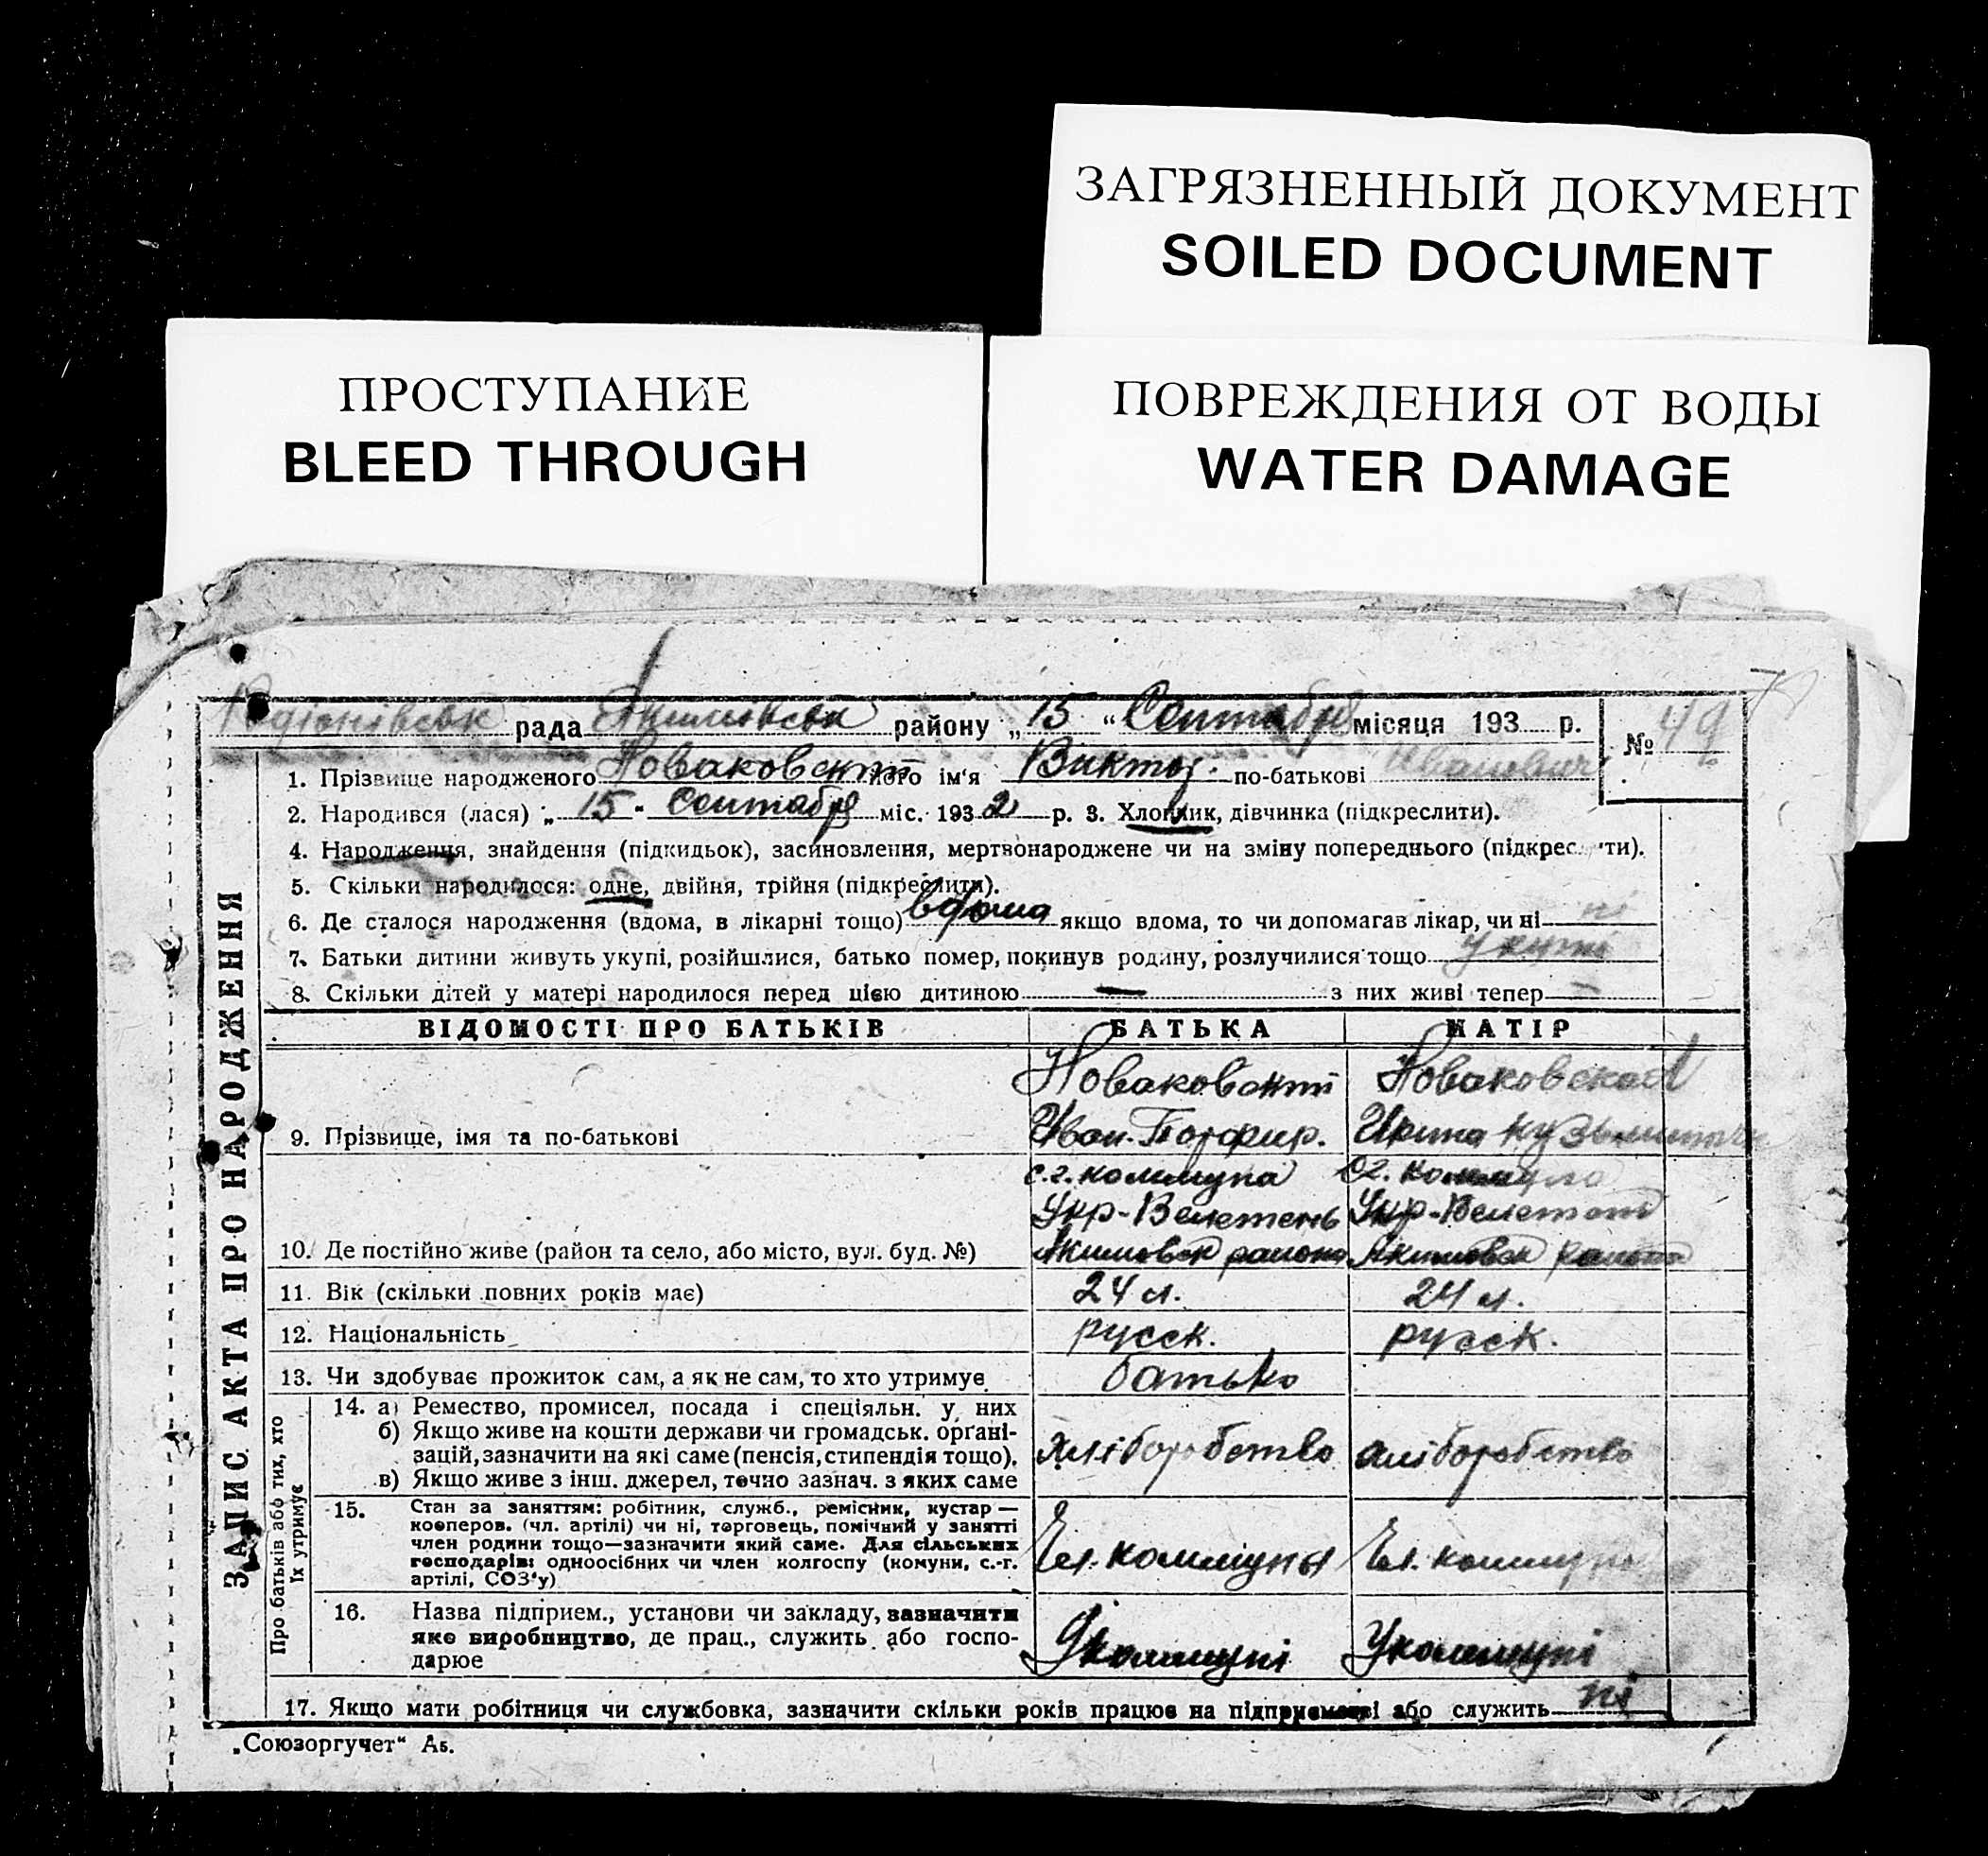 ЗАГРЯЗНЕННЫЙ ДОКУМЕНТ
SOILED DOCUMENT
ПРОСТУПАНИЕ
BLEED THROUGH
ПОВРЕЖДЕНИЯ ОТ ВОДЫ
WATER DAMAGE
рада району „ 15 “ Сентября місяця 193 р.
№ 49
1. Прізвище народженого ного ім'я Виктор. по-батькові Иванович
2. Народився (лася) „ 15 " Сентября міс. 1932 р. 3. Хлопчик, дівчинка (підкреслити).
4. Народження, знайдення (підкидьок), засиновлення, мертвонароджене чи на зміну попереднього
5. Скільки народилося: одне, двійня, трійня (підкреслити).
6. Де сталося народження (вдома, в лікарні тощо) вдома якщо вдома, то чи допомагав лікар, чи ні ні
7. Батьки дитини живуть укупі, розійшлися, батько помер, покинув родину, розлучилися тощо укупі
8. Скільки дітей у матері народилося перед цією дитиною — з них живі тепер —
ЗАПИС АКТА ПРО НАРОДЖЕННЯ
ВІДОМОСТІ ПРО БАТЬКІВ БАТЬКА МАТІР
Новаковская
9. Прізвище, імя та по-батькові Иван. Порфир. Ирина
с.г. коммуна с.г. коммуна
Укр-Велетень
10. Де постійно живе (район та село, або місто, вул. буд. №) Акимовск района Акимовск района
11. Вік (скільки повних років має) 24 л. 24 л.
12. Національність русск. русск.
13. Чи здобуває прожиток сам, а як не сам, то хто утримує батько
Про батьків або тих, хто
їх утримує
14. а) Ремество, промисел, посада і спеціяльн. у них
б) Якщо живе на кошти держави чи громадськ. орґані-
зацій, зазначити на які саме (пенсія, стипендія тощо).
в) Якщо живе з інш. джерел, точно зазнач. з яких саме
хліборобство хліборобство
15. Стан за заняттям: робітник, служб., ремісник, кустар —
кооперов. (чл. артілі) чи ні, торговець, помічний у занятті
член родини тощо—зазначити який саме. Для сільських
господарів: одноосібних чи член колгоспу (комуни, с.-г.
артілі, СОЗ'у)
Чл. коммуны Чл. коммуны
16. Назва підприєм., установи чи закладу, зазначити
яке виробництво, де прац., служить або госпо-
дарює
У коммуні У коммуні
17. Якщо мати робітниця чи службовка, зазначити скільки років працює на підприємстві або служить ні
„Союзоргучет“ А5.